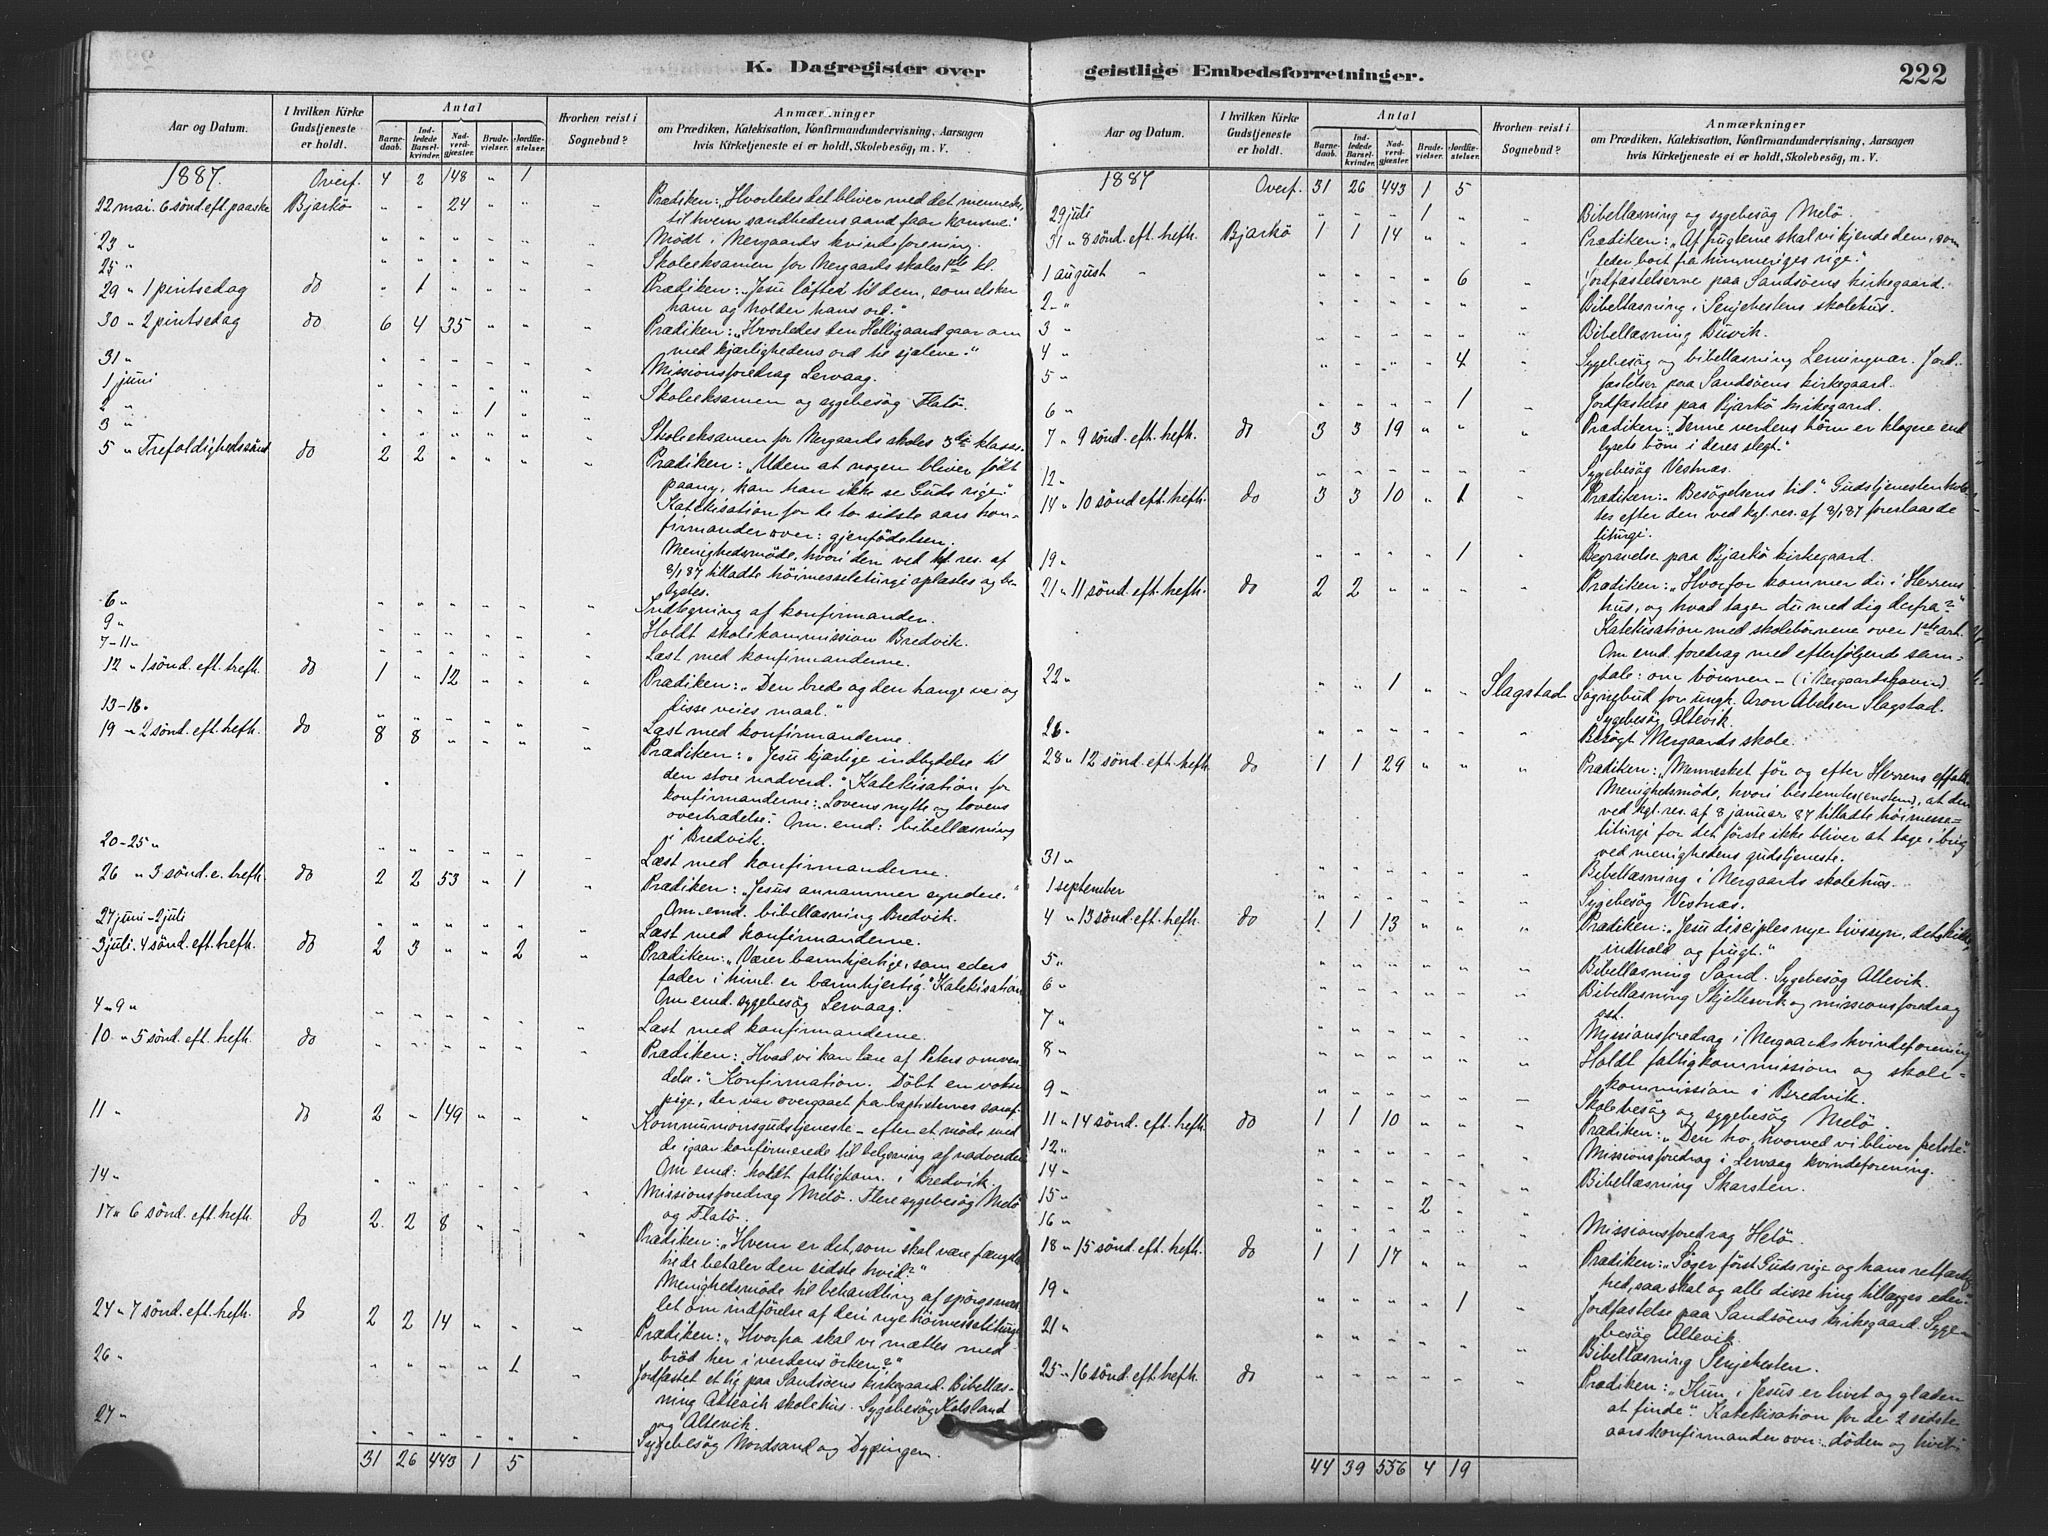 K. Dagregister over geistlige Embedsforretninger. 222
Aar og Datum. I hvilken Kirke Gudstjeneste er holdt. Antal Barnedaab. Indledede Barselkvinder. Nadverdgjæster. Brudevielser. Jordfæstelser. Hvorhen reist i Sognebud? Anmærkninger om Prædiken, Katekisation, Konfirmandundervisning, Aarsagen hvis Kirketjeneste ei er holdt, Skolebesøg, m. V.
1887. Overf. 4 2 148 " 1
22 mai. 6 sönd. eft. paaske Bjarkö " " 24 " " " Prædiken: "Hvorledes det bliver med det menneske,
til hvem sandhedens aand faar komme."
23 " " " " " " " Mödt i Nergaards kvindeforening.
25 " " " " " " " Skoleeksamen for Nergaards skoles 1ste kl.
29 " 1 pintsedag do " 1 " " " " Prædiken: "Jesu löfter til dem, som elsker
ham og holder hans ord."
30 " 2 pintsedag do 6 4 35 " " " Prædiken: "Hvorledes den Helligaand gaar om
med kjærlighedens ord til sjælene."
31 " " " " " " " Missionsforedrag Lervaag.
1 juni " " " " " " Skoleeksamen og sygebesög Flatö.
2 " " " " 1 " "
3 " " " " " " " Skoleeksamen for Nergaards skoles 3die klasse.
5 " Trefoldighedssönd do 2 2 " " " " Prædiken: "Uden at nogen bliver födt
paany, kan han ikke se Guds rige."
Katekisation for de to sidste aars kon-
firmander over: gjenfödelsen.
Menighedsmöde, hvori den ved kgl. res. af
8/1 87 tilladte höimesseliturgi oplæstes og be-
lystes.
6 " " " " " " " Indtegning af konfirmander.
9 " " " " " " " Holdt skolekommission Bredvik.
7-11 " " " " " " " Læst med konfirmanderne.
12 " 1 sönd. eft. trefh. do 1 " 12 " " " Prædiken: "Den brede og den trange vei og
disse veies maal."
13-18 " " " " " " " Læst med konfirmanderne.
19 " 2 sönd. eft. trefh. do 8 8 " " " " Prædiken: "Jesu kjærlige indbydelse til
den store nadverd." Katekisation for
konfirmanderne: "Lovens nytte og lovens
overtrædelse." Om emd: bibellæsning
i Bredvik.
20-25 " " " " " " " Læst med konfirmanderne.
26 " 3 sönd. e. trefh. do 2 2 53 " 1 " Prædiken: "Jesus annammer syndere."
Om emd. bibellæsning Bredvik.
27 juni-2 juli " " " " " " Læst med konfirmanderne.
3 juli. 4 sönd. eft. trefh. do 2 3 " " 2 " Prædiken: "Værer barmhjertige, som eders
fader i himl. er barmhjertig." Katekisation
Om emd. sygebesög Lervaag.
4 " 9 " " " " " " " Læst med konfirmanderne.
10 " 5 sönd. eft. trefh. do " " " " " " Prædiken: "Hvad vi kan lære af Peters omven-
delse." Konfirmation. Döbt en voksen
pige, der var overgaaet fra baptisternes samf.
11 " do 2 " 149 " " " Kommunionsgudstjeneste - efter et möde med
de igaar konfirmerede til belysning af nadverden
Om emd: holdt fattigkom. i Bredvik.
14 " " " " " " " Missionsforedrag Melö. Flere sygebesög Melö
og Flatö.
17 " 6 sönd. eft. trefh. do 2 2 8 " " " Prædiken: "Hvem er det, som skal være fængslet
til de betaler den sidste hvid?"
Menighedsmöde til behandling af spörgsmaa-
let om indförelse af den nye höimesseliturgi
24 " 7 sönd. eft. trefh. do 2 2 14 " " " Prædiken: "Hvorfra skal vi mættes med
bröd her i verdens örken?"
26 " " " " " 1 " Jordfæstet et lig paa Sandsöens kirkegaard. Bibellæs-
ning Altevik skolehus. Sygebesög Kolsland
og Altevik.
27 " " " " " " " Sygebesög Nordsand og Dypingen.
31 26 443 1 5
Aar og Datum. I hvilken Kirke Gudstjeneste er holdt. Antal Barnedaab. Indledede Barselkvinder. Nadverdgjæster. Brudevielser. Jordfæstelser. Hvorhen reist i Sognebud? Anmærkninger om Prædiken, Katekisation, Konfirmandundervisning, Aarsagen hvis Kirketjeneste ei er holdt, Skolebesøg, m. V.
1887 Overf. 31 26 443 1 5
29 juli " " " 1 " " Bibellæsning og sygebesög Melö.
31 " 8 sönd. eft. trefh. Bjarkö 1 1 14 " " " Prædiken: "Af frugterne skal vi kjende dem, som
leder bort fra himmeriges rige."
1 august " " " " 6 " Jordfæstelserne paa Sandsöens kirkegaard.
2 " " " " " " " Bibellæsning i Senjehestens skolehus.
3 " " " " " " " Bibellæsning Buvik.
4 " " " " " 4 " Sygebesög og bibellæsning Lemingvær. Jord-
fæstelser paa Sandsöens kirkegaard.
5 "
6 " " " " " 1 " Jordfæstelse paa Bjarkö kirkegaard.
7 " 9 sönd. eft. trefh. do 3 3 19 " " " Prædiken: "Denne verdens börn er klogere end
lysets börn i deres slegt."
12 " " " " " " " Sygebesög Vestnæs.
14 " 10 sönd. eft. trefh. do 3 3 10 " 1 " Prædiken: "Besögelsens tid." Gudstjenesten hold-
tes efter den ved kgl. res. af 8/1 87 foreslaaede
liturgi.
19 " " " " " 1 " Begravelse paa Bjarkö kirkegaard.
21 " 11 sönd. eft. trefh. do 2 2 " " " " Prædiken: "Hvorfor kommer du i Herrens
hus, og hvad tager du med dig derfra?"
Katekisation med skolebörnene over 1ste art.
Om emd. foredrag med efterfölgende sam-
tale: om bönnen - (i Nergaardshavn).
22 " " " 1 " " Slagstad Sognebud for ungk. Aron Abelsen Slagstad.
Sygebesög Altevik.
26 " " " " " " " Besögt Nergaards skole.
28 " 12 sönd. eft. trefh. do 1 1 29 " " " Prædiken: "Mennesket för og efter Herrens effata."
Menighedsmöde, hvori bestemtes (enstem), at den
ved kgl. res. af 8 januar 87 tilladte höimesse-
liturgi for det förste ikke bliver at tage i brug
ved menighedens gudstjeneste.
31 " " " " " " " Bibellæsning i Nergaards skolehus.
1 september " " " " " " Sygebesög Vestnæs.
4 " 13 sönd. eft. trefh. do 1 1 13 " " " Prædiken: "Jesu disciples nye livssyn, dets kilde,
indhold og frugt."
5 " " " " " " " Bibellæsning Sand. Sygebesög Altevik.
6 " " " " " " " Bibellæsning Skjellesvik og missionsforedrag
sst.
7 " " " " " " " Missionsforedrag i Nergaards kvindeforening
8 " " " " " " " Holdt fattigkommission og skole-
kommission i Bredvik.
9 " " " " " " " Skolebesög og sygebesög Melö.
11 " 14 sönd. eft. trefh. do 1 1 10 " " " Prædiken: "Den tro, hvorved vi bliver frelste."
12 " " " " " " " Missionsforedrag i Lervaag kvindeforening.
14 " " " " " " " Bibellæsning Skarsten.
15 " " " " 2 " "
16 " " " " " " " Missionsforedrag Helö.
18 " 15 sönd. eft. trefh. do 1 1 17 " " " Prædiken: "Söger först Guds rige og hans retfærdig-
hed, saa skal og alle disse ting tillægges eder."
19 " " " " " 1 " Jordfæstelse paa Sandsöens kirkegaard. Syge-
besög Altevik.
21 " " " " " " " Bibellæsning Senjehesten.
25 " 16 sönd. eft. trefh. do " " " " " " Prædiken: "Kun i Jesus er livet og glæden
at finde". Katekisation for de 2 sidste
aars konfirmander over: döden og livet.
44 39 556 4 19